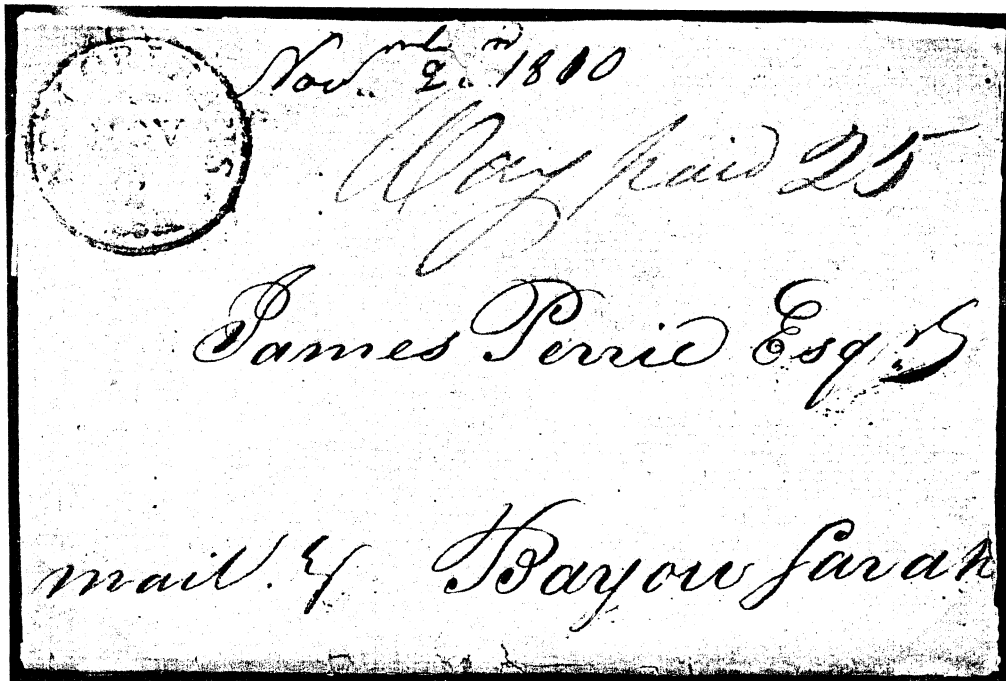 NOV
Novmb 2nd 1810
Way paid 25
James Perrie Esqr
mail. &
Bayou Sarah